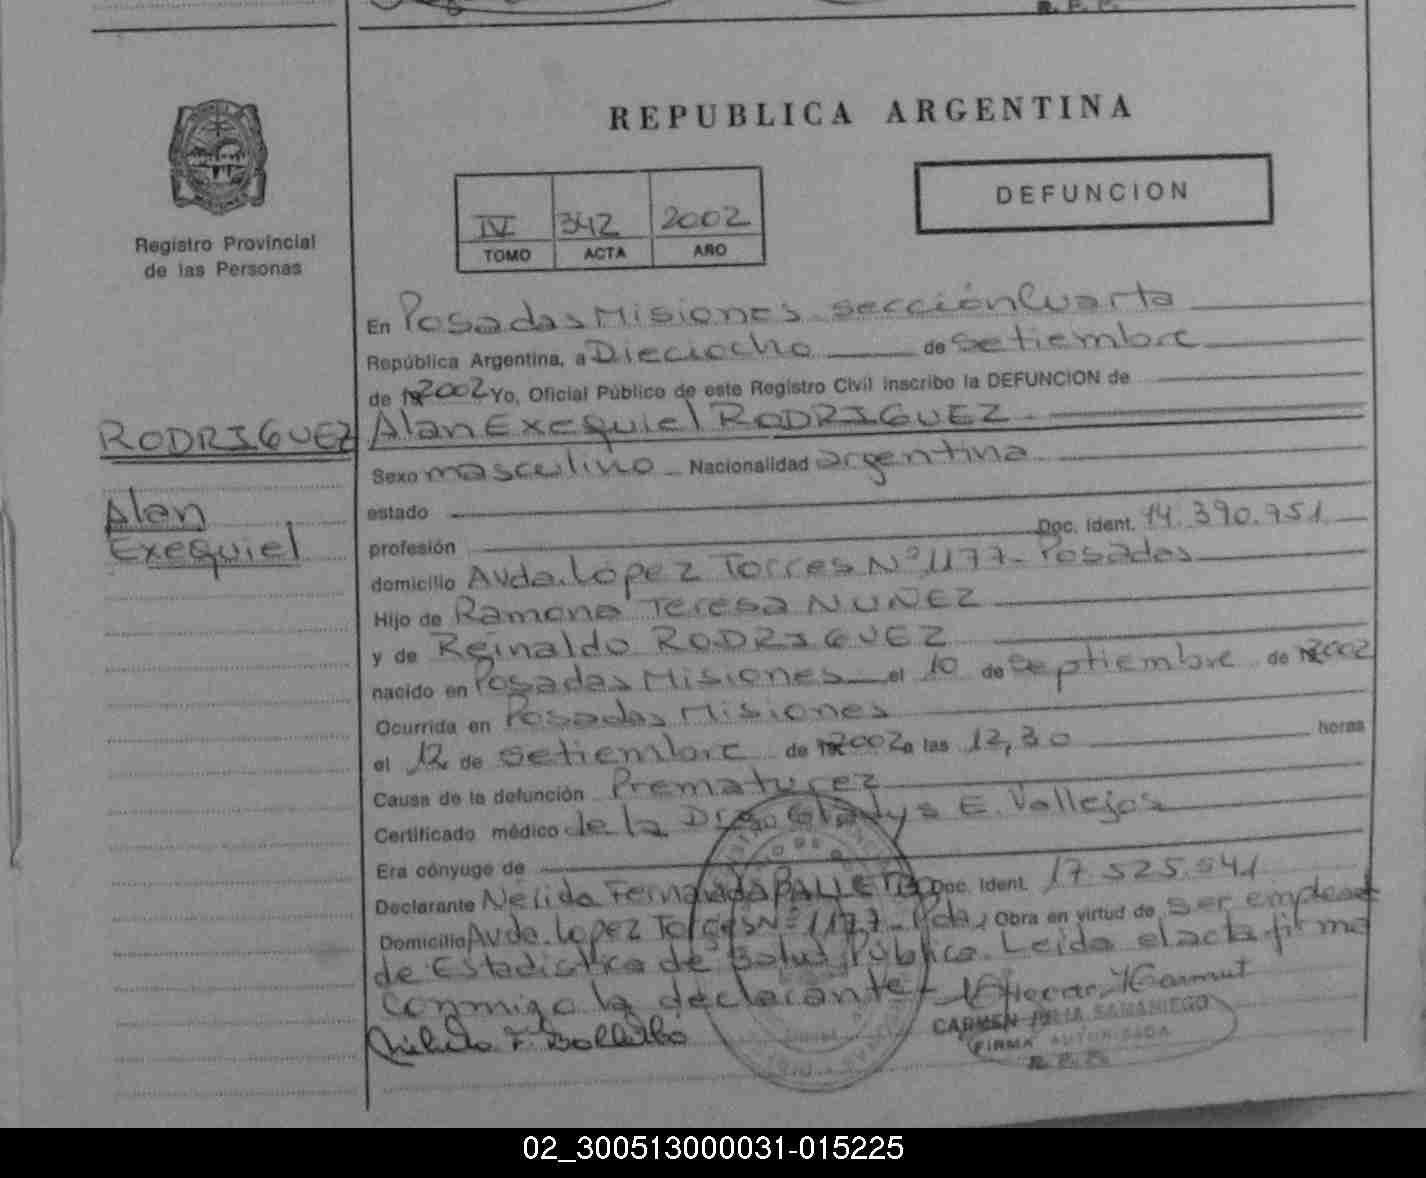 R. P. P.
REPUBLICA ARGENTINA
DEFUNCION
IV 342 2002
TOMO ACTA AÑO
Registro Provincial
de las Personas
RODRIGUEZ
Alan
Exequiel
En Posadas Misiones sección Cuarta
República Argentina, a Dieciocho de Setiembre
de 2002 Yo, Oficial Público de este Registro Civil inscribo la DEFUNCION de
Alan Exequiel RODRIGUEZ
Sexo masculino Nacionalidad argentina
estado
profesión Doc. Ident. 14.390.951
domicilio Avda. López Torres Nº 1177 - Posadas
Hijo de Ramona Teresa NUÑEZ
y de Reinaldo RODRIGUEZ
nacido en Posadas Misiones el 10 de Septiembre de 2002
Ocurrida en Posadas Misiones
el 12 de setiembre de 2002 a las 12,30 horas
Causa de la defunción Prematurez
Certificado médico de la Dra. Gladys E. Vallejos
Era cónyuge de
Declarante Nélida Fernanda Doc. Ident. 17.525.541
Domicilio Avda. Lopez Torres Nº 1177 - Pdas, Obra en virtud de ser emplead
de Estadistica de Salud Pública. Leida el acta firma
conmigo la declarante
CARMEN JULIA SAMANIEGO
FIRMA AUTORIZADA
R. P. P.
02_300513000031-015225